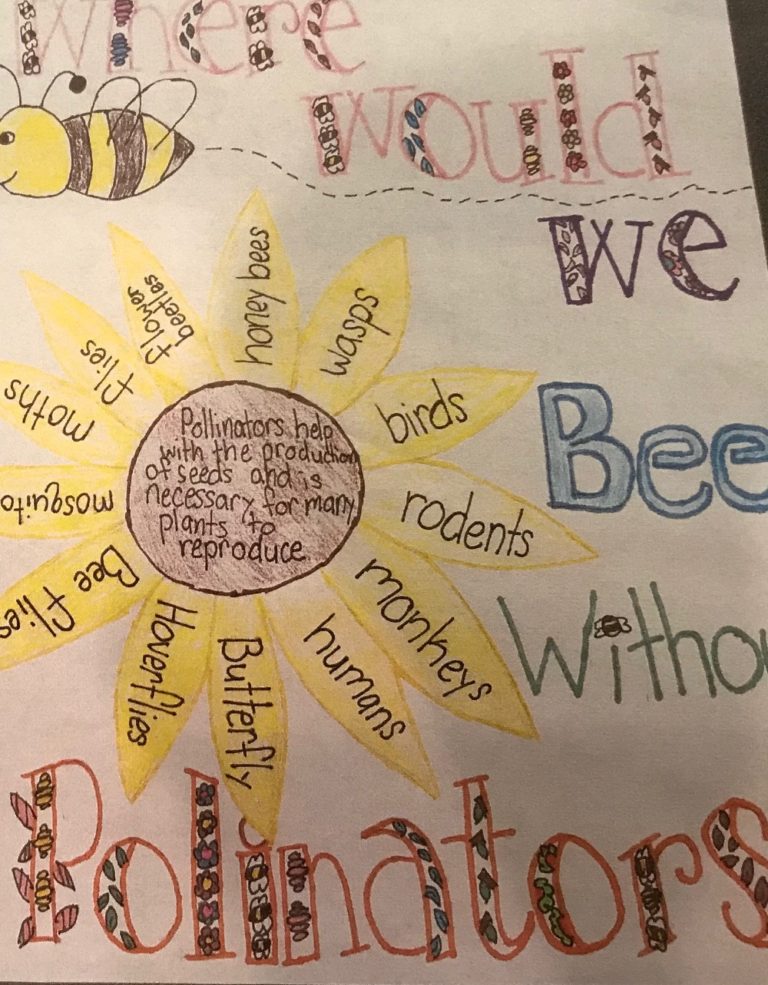 Where
would
we
Bee
Withou
Polinators
honey bees
wasps
birds
rodents
monkeys
humans
Butterfly
Hoverflies
Bee flies
mosquito
moths
flies
flower
beetles
Pollinators help
with the production
of seeds and is
necessary for many
plants to
reproduce